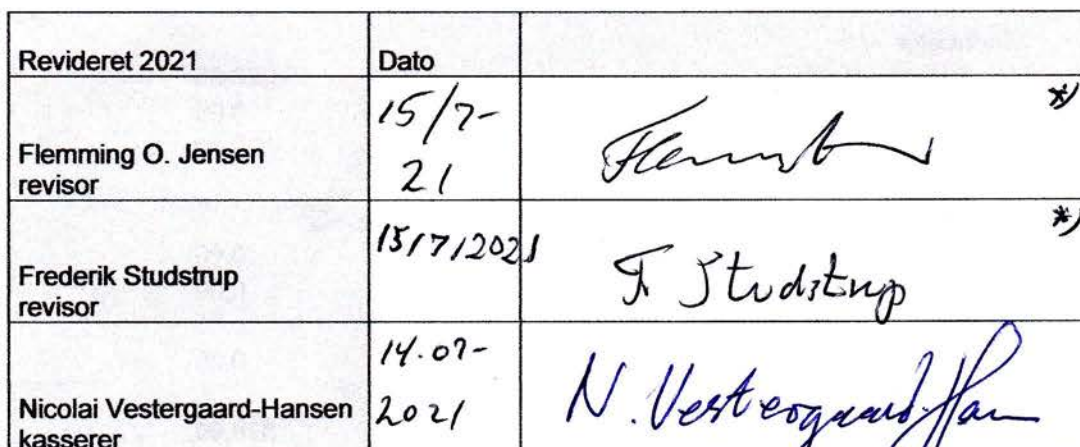 Revideret 2021 Dato
Flemming O. Jensen
revisor
15/7-
21
*)
Frederik Studstrup
revisor
15/7/2021
F Studstrup
*)
Nicolai Vestergaard-Hansen
kasserer
14.07-
2021
N. Vestergaard-Han